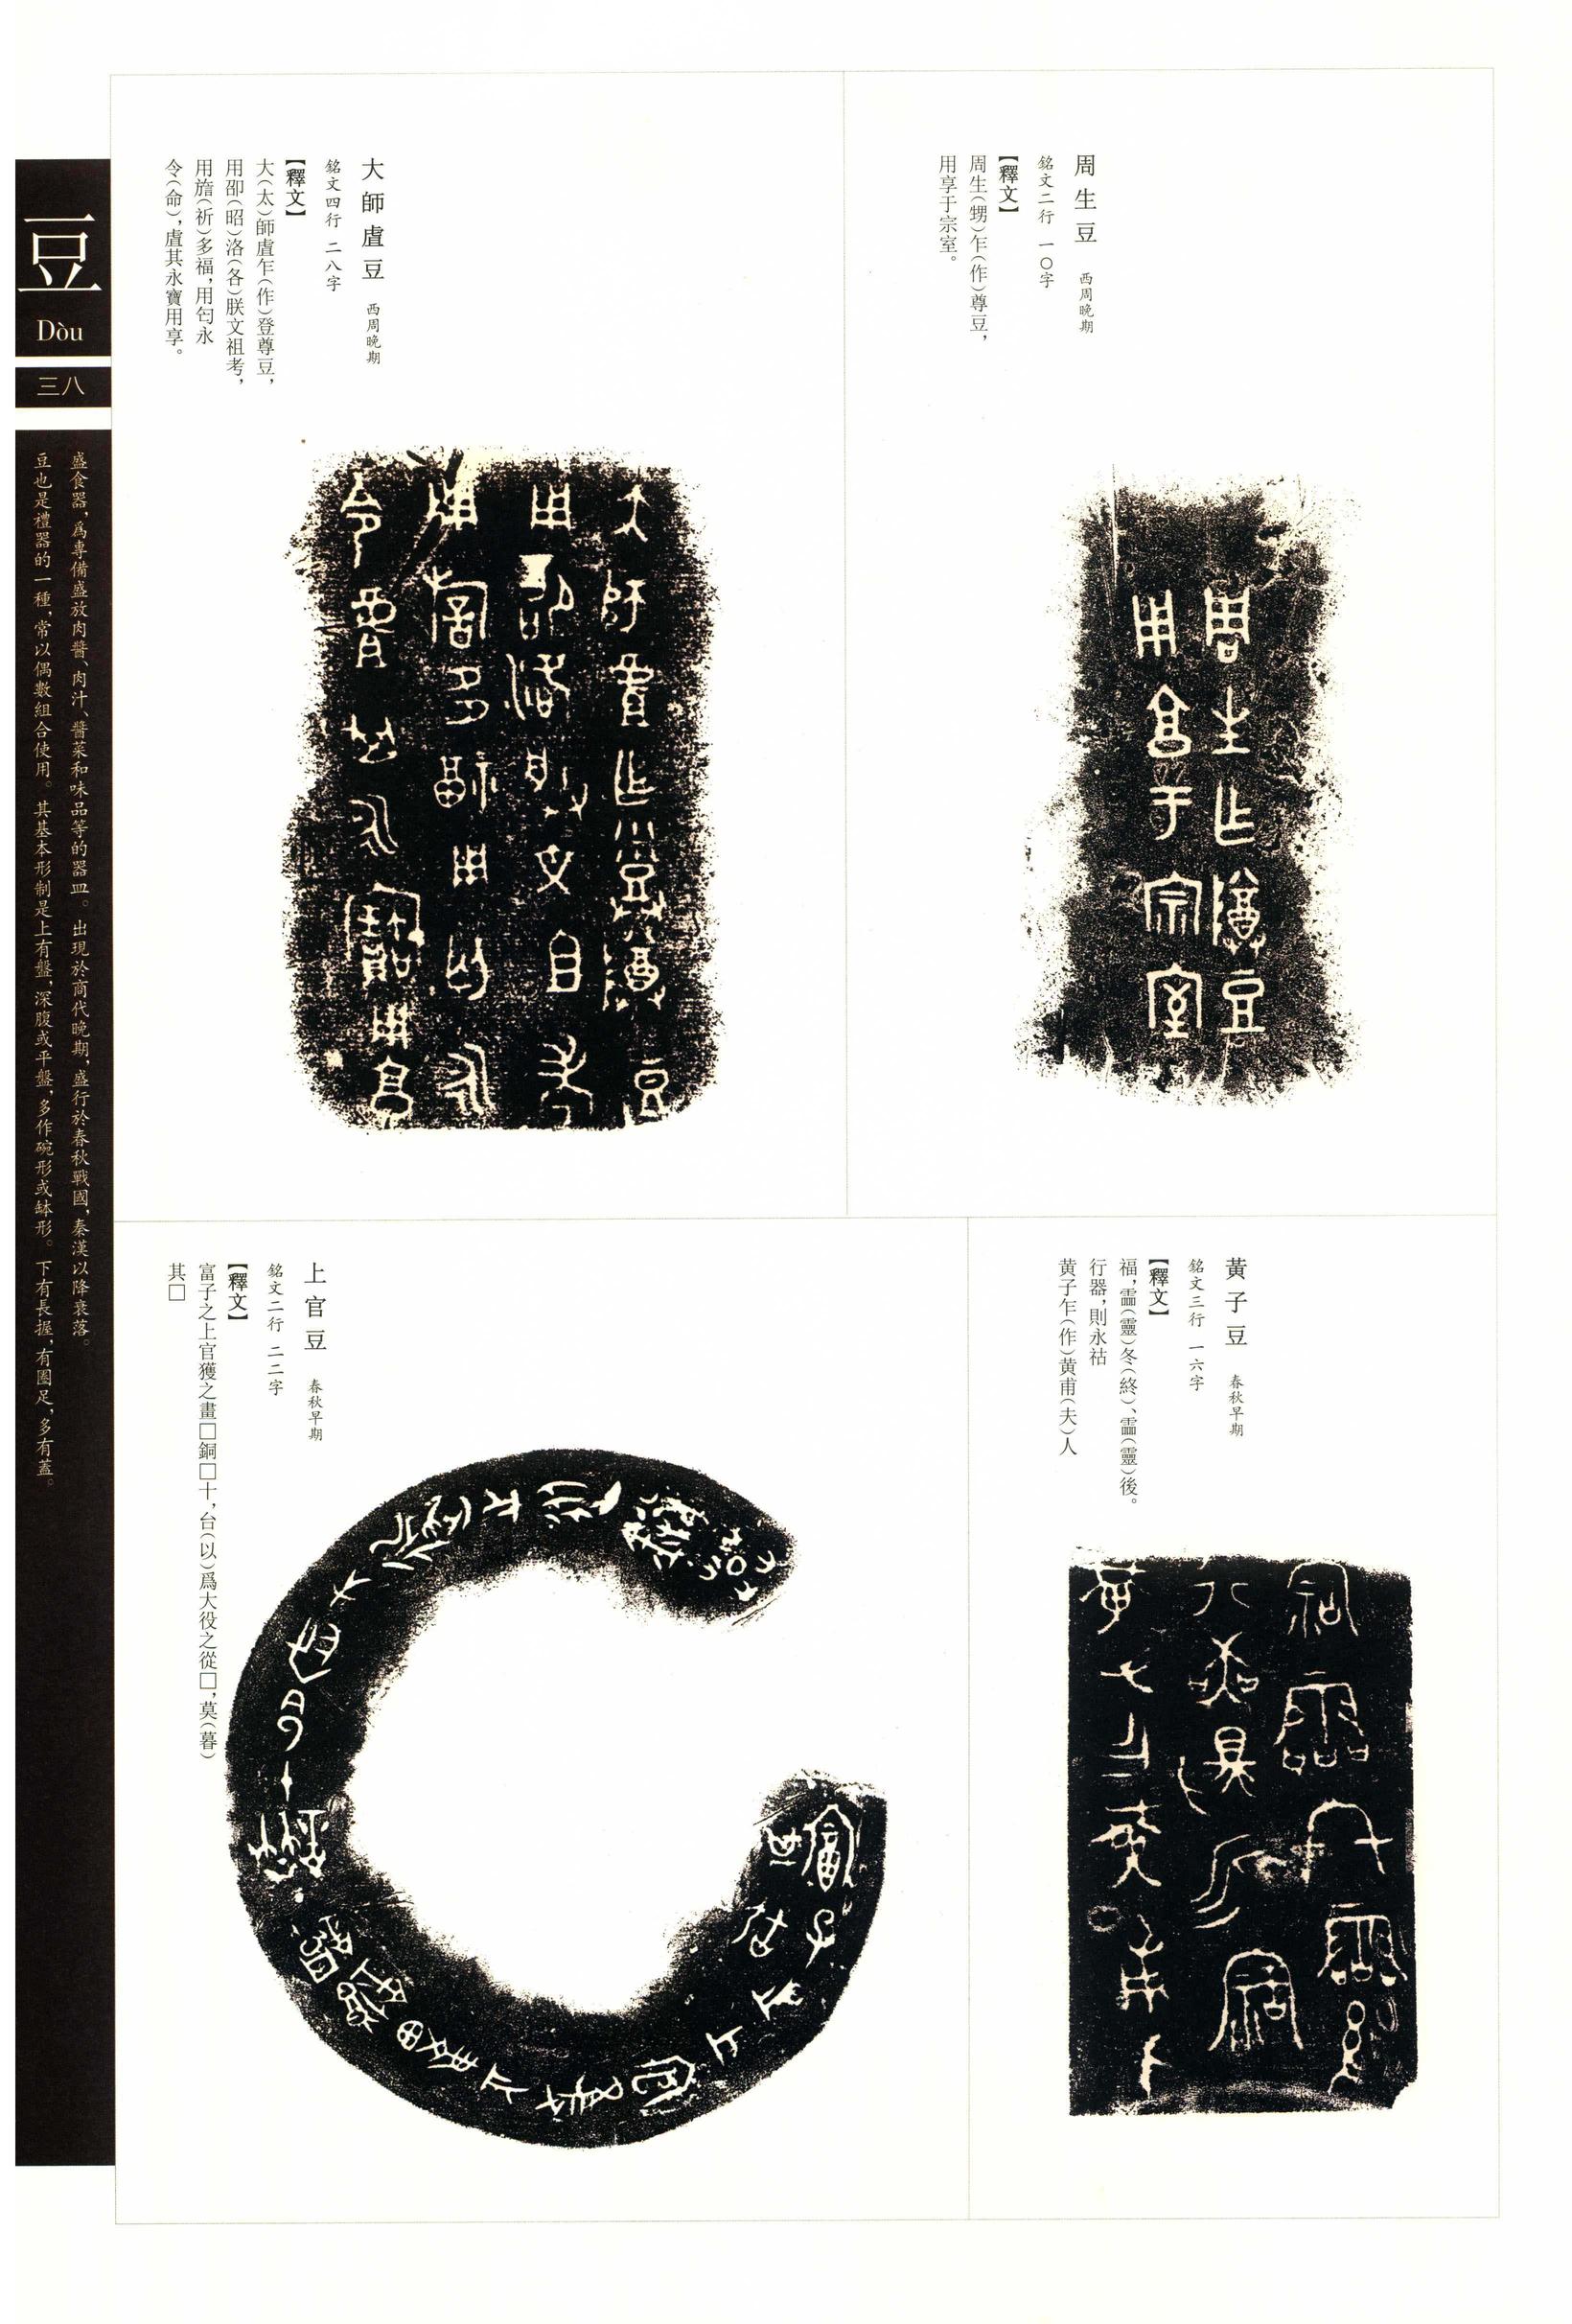 周生豆 西周晚期
銘文二行 一〇字
【釋文】
周生(甥)乍(作)尊豆，
用享于宗室。
大師虘豆 西周晚期
銘文四行 二八字
【釋文】
大(太)師虘乍(作)登尊豆，
用卲(昭)洛(各)朕文祖考，
用旜(祈)多福，用匄永
令(命)，虘其永寶用享。
黃子豆 春秋早期
銘文三行 一六字
【釋文】
福，霝(靈)冬(終)、霝(靈)後。
行器，則永祜
黃子乍(作)黃甫(夫)人
上官豆 春秋早期
銘文二行 二二字
【釋文】
富子之上官獲之畫□銅□十，台(以)爲大役之從□，莫(暮)
其□
豆
Dòu
三八
盛食器，爲專備盛放肉醬、肉汁、醬菜和味品等的器皿。出現於商代晚期，盛行於春秋戰國，秦漢以降衰落。
豆也是禮器的一種，常以偶數組合使用。其基本形制是上有盤，深腹或平盤，多作碗形或缽形。下有長握，有圈足，多有蓋。